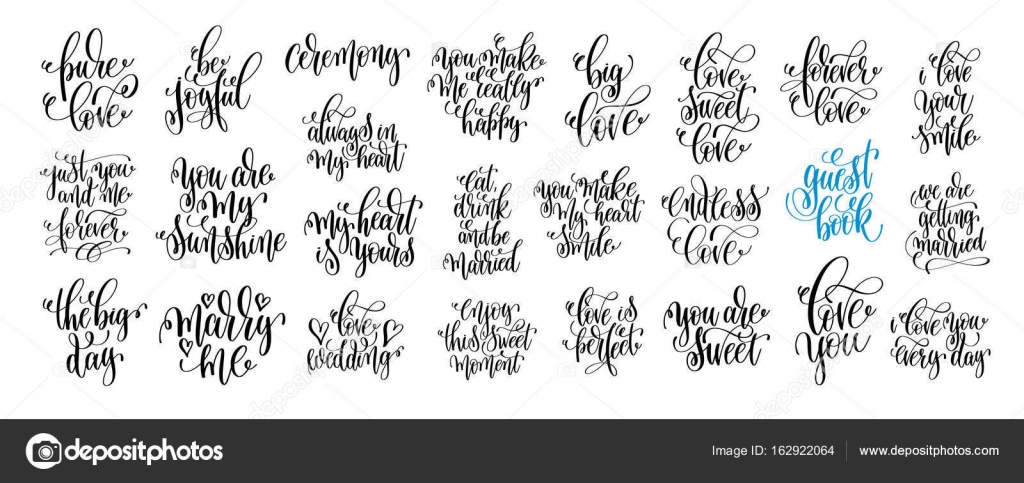 pure
love
be
joyful
ceremony
you make
me really
happy
big
love
love
sweet
love
forever
love
i love
your
smile
always in
my heart
just you
and me
forever
you are
my
sunshine
my heart
is yours
eat
drink
and be
married
you make
my heart
smile
endless
love
guest
book
we are
getting
married
the big
day
marry
me
love
wedding
enjoy
this sweet
moment
love is
perfect
you are
sweet
love
you
i love you
every day
depositphotos
Image ID: 162922064
www.depositphotos.com